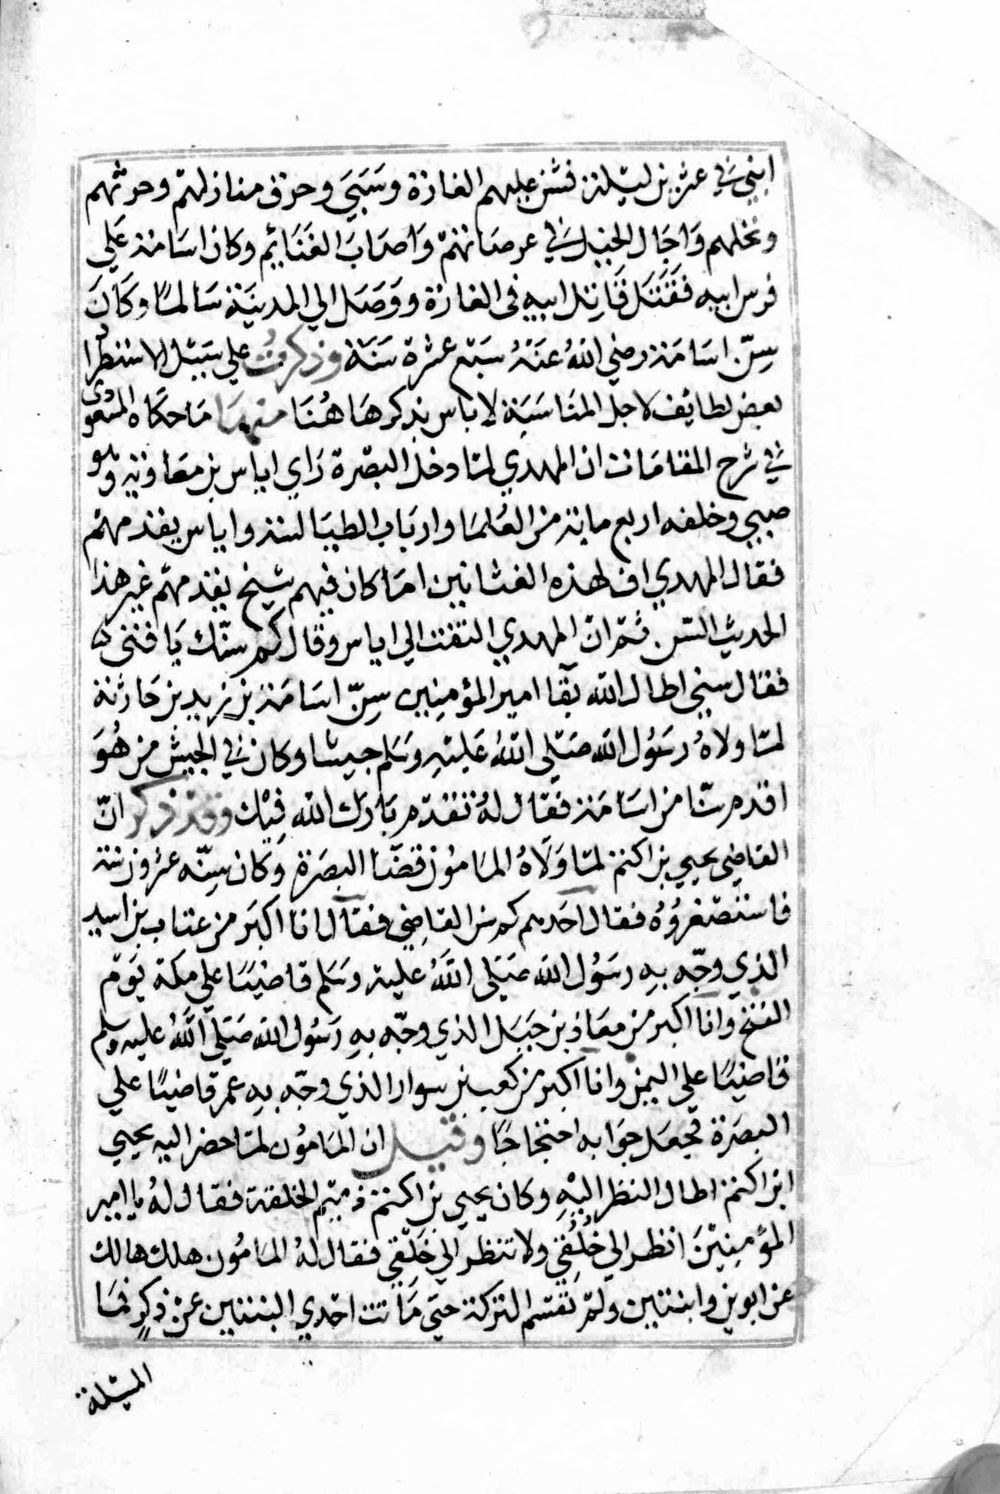 ابني في عشرين ليلة فشن عليهم الغارة وسبي وحرق منازلهم وحرثهم
ونخلهم واجال الخيل في عرصاتهم واصاب الغنايم وكان اسامة علي
فرس ابيه فقتل قاتل ابيه في الغارة ووصل الي المدينة سالما وكان
سن اسامة رضي الله عنه سبع عشرة سنة وذكرت علي سبيل الاستطرا
بعض لطايف لاجل المناسبة لا باس بذكرها هنا منها ما حكاه المسعودي
في شرح المقامات ان المهدي لما دخل البصرة راي اياس بن معاوية وهو
صبي وخلفه اربع ماية من العلما وارباب الطيالسة واياس يقدمهم
فقال المهدي اف لهذه العثانين اما كان فيهم شيخ يقدمهم غير هذا
الحديث السن ثم ان المهدي التفت الي اياس وقال كم سنك يا فتي
فقال سني اطال الله بقا امير المؤمنين سن اسامة بن زيد بن حارثة
لما ولاه رسول الله صلي الله عليه وسلم جيشا وكان في الجيش من هو
اقدم سنا من اسامة فقال له تقدم بارك الله فيك وقد ذكر ان
القاضي يحيي بن اكتم لما ولاه المامون قضا البصرة وكان سنه عشرون سنة
فاستصغروه فقال احدهم كم سن القاضي فقال انا اكبر من عتاب بن اسيد
الذي وجه به رسول الله صلي الله عليه وسلم قاضيا علي مكة يوم
الفتح وانا اكبر من معاذ بن جبل الذي وجه به رسول الله صلي الله عليه وسلم
قاضيا علي اليمن وانا اكبر من كعب بن سوار الذي وجه به عمر قاضيا علي
البصرة فجعل جوابه احتجاجا وقيل ان المامون لما حضر اليه يحيي
ابن اكتم اطال النظر اليه وكان يحيي بن اكتم ذميم الخلقة فقال له يا امير
المؤمنين انظر الي خلقي ولا تنظر الي خلقي فقال له المامون هلك هالك
عن ابوين وابنتين ولم تقسم التركة حتي ماتت احدي البنتين عن ذكر فما
المسئلة